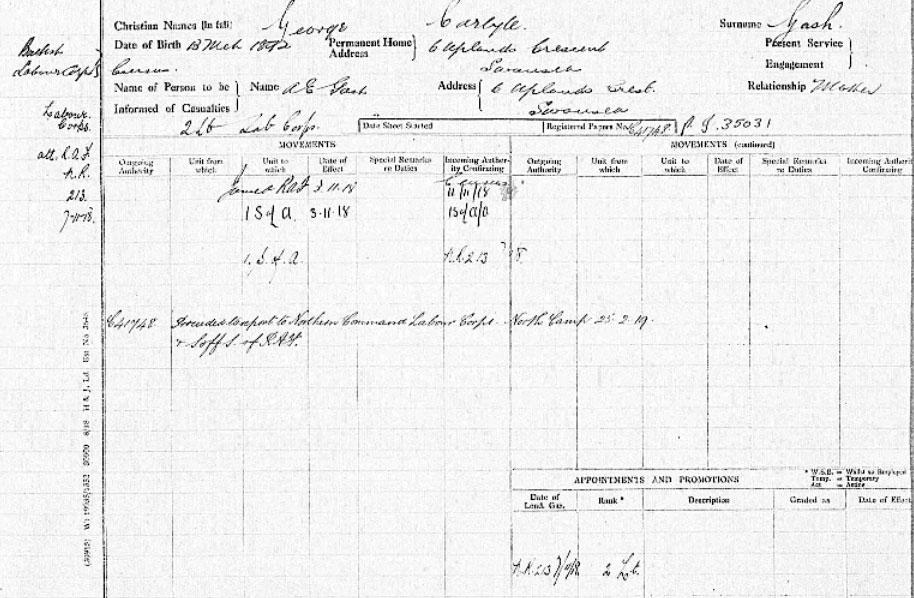 Christian Names (In full) George Carlyle. Surname Gash.
British Labour Corps
Date of Birth 13 Mch 1892 Permanent Home Address 6 Uplands Crescent Swansea Present Service Engagement
Census.
Name of Person to be Informed of Casualties Name A E Gash Address 6 Uplands Crest. Swansea Relationship Mother
Labour Corps.
2 Lt Lab Corps. Date Sheet Started Registered Papers No. C41748 35031
att. R.A.F
213
7-11-18.
MOVEMENTS MOVEMENTS (continued)
Outgoing Authority Unit from which Unit to which Date of Effect Special Remarks re Duties Incoming Authority Confirming Outgoing Authority Unit from which Unit to which Date of Effect Special Remarks re Duties Incoming Authority Confirming
Joined RAF 3.11.18 Census 11/11/18
1 S of A 3-11-18 1 S of A/O
1. S. of A. 213
C41748 Proceeded to report to Northern Command Labour Corps. North Camp 25.2.19.
+ S off S. of R.A.F.
* W.S.E. = Whilst so Employed
Temp. = Temporary
Act = Acting
APPOINTMENTS AND PROMOTIONS
Date of Lond. Gaz. Rank * Description Graded as Date of Effect
213 2 Lt.